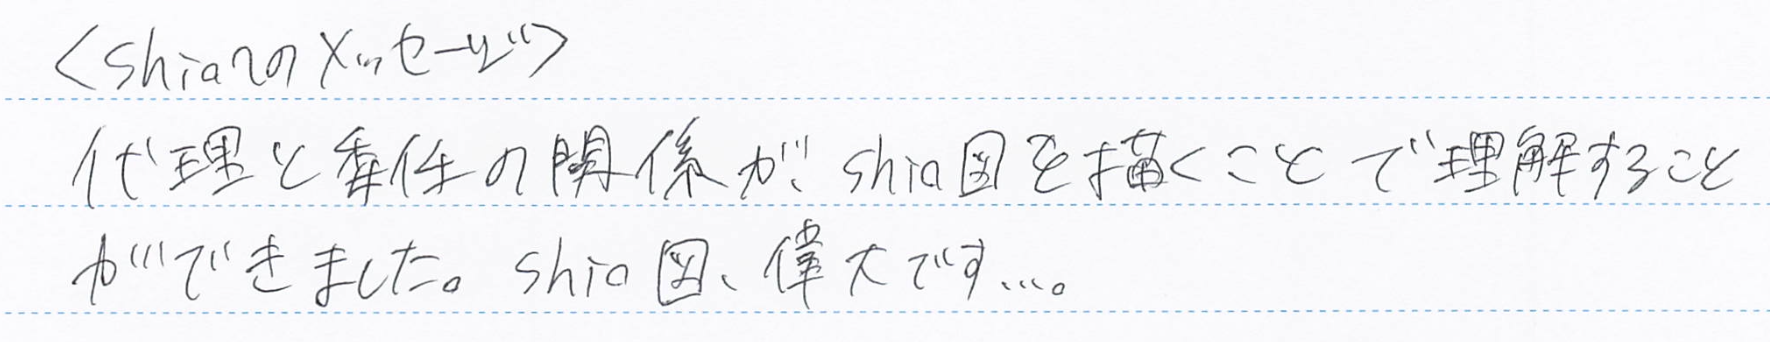 <shiaへのメッセージ>
代理と委任の関係が、shia図を描くことで理解すること
ができました。shia図、偉大です…。